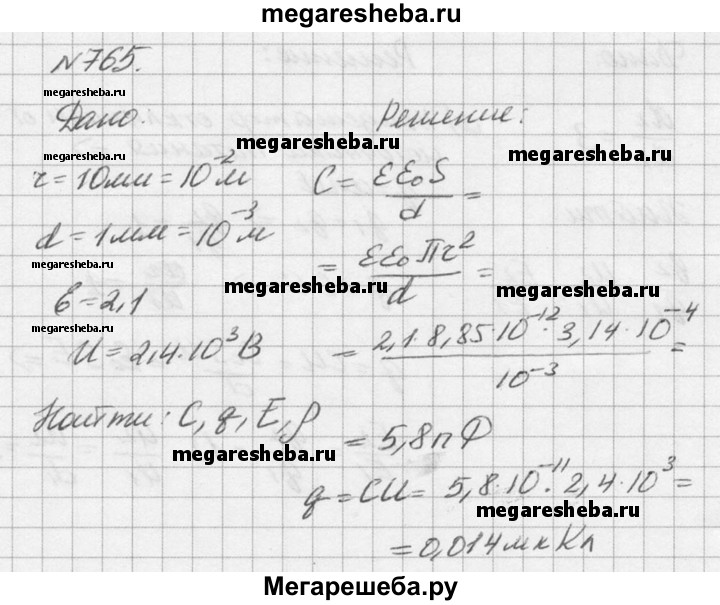 megaresheba.ru
№765.
megaresheba.ru
Дано. Решение:
megaresheba.ru megaresheba.ru
r = 10мм = 10⁻² м C = εε₀S/d =
megaresheba.ru
d = 1мм = 10⁻³ м
megaresheba.ru
= εε₀πr²/d =
megaresheba.ru megaresheba.ru
ε = 2,1
megaresheba.ru
U = 2,4·10³ В = 2,1·8,85·10⁻¹²·3,14·10⁻⁴/10⁻³ =
Найти: C, q, E, ρ = 5,8пФ
megaresheba.ru
q = CU = 5,8·10⁻¹¹·2,4·10³ =
megaresheba.ru
= 0,014мкКл
Мегарешеба.ру